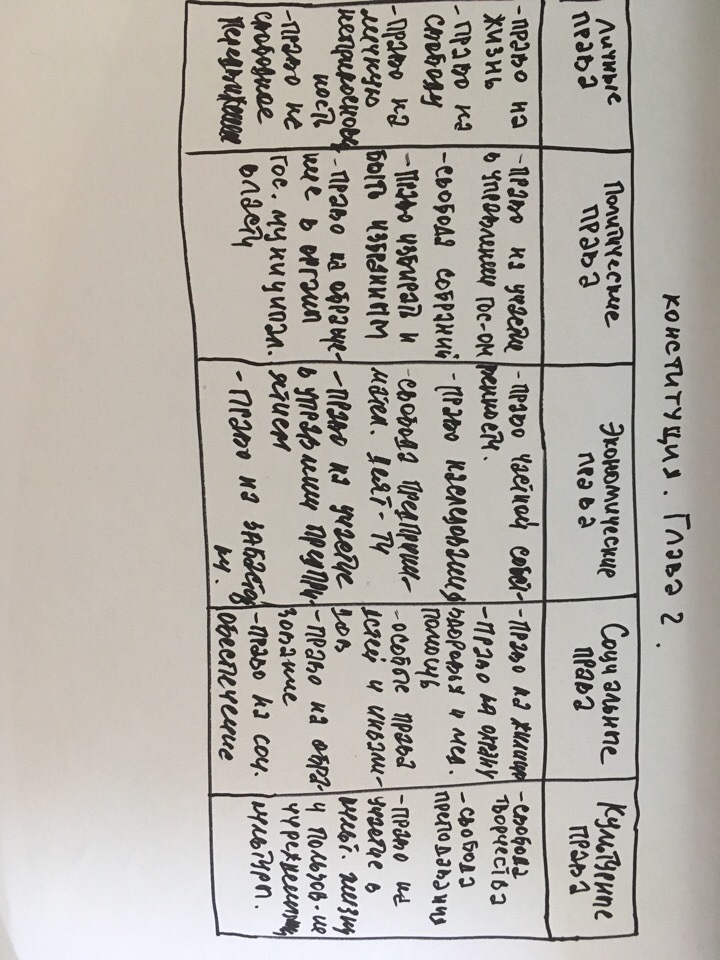 КОНСТИТУЦИЯ. Глава 2.
Личные
права
- право на
жизнь
- право на
свободу
- право на
личную
неприкоснове
ность
- право на
свободное
Политические
права
- право на участие
в управлении гос-ом
- свобода собраний
- право избирать и
быть избранным
- право на обраще-
ние в органы
гос. муниципал.
власти
Экономические
права
- право частной собст-
венности.
- право наследования
- свобода предприни-
мател. деят-ти
- право на участие
в управлении предпри-
ятием
- право на забастов
ку.
Социальные
права
- право на жилище
- право на охрану
здоровья и мед.
помощь
- особые права
детей и инвали-
дов
- право на обра-
зование
- право на соц.
обеспечение
Культурные
права
- свобода
творчества
- свобода
преподавания
- право на
участие в
культ. жизни
и пользов-ие
учреждениями
культуры.